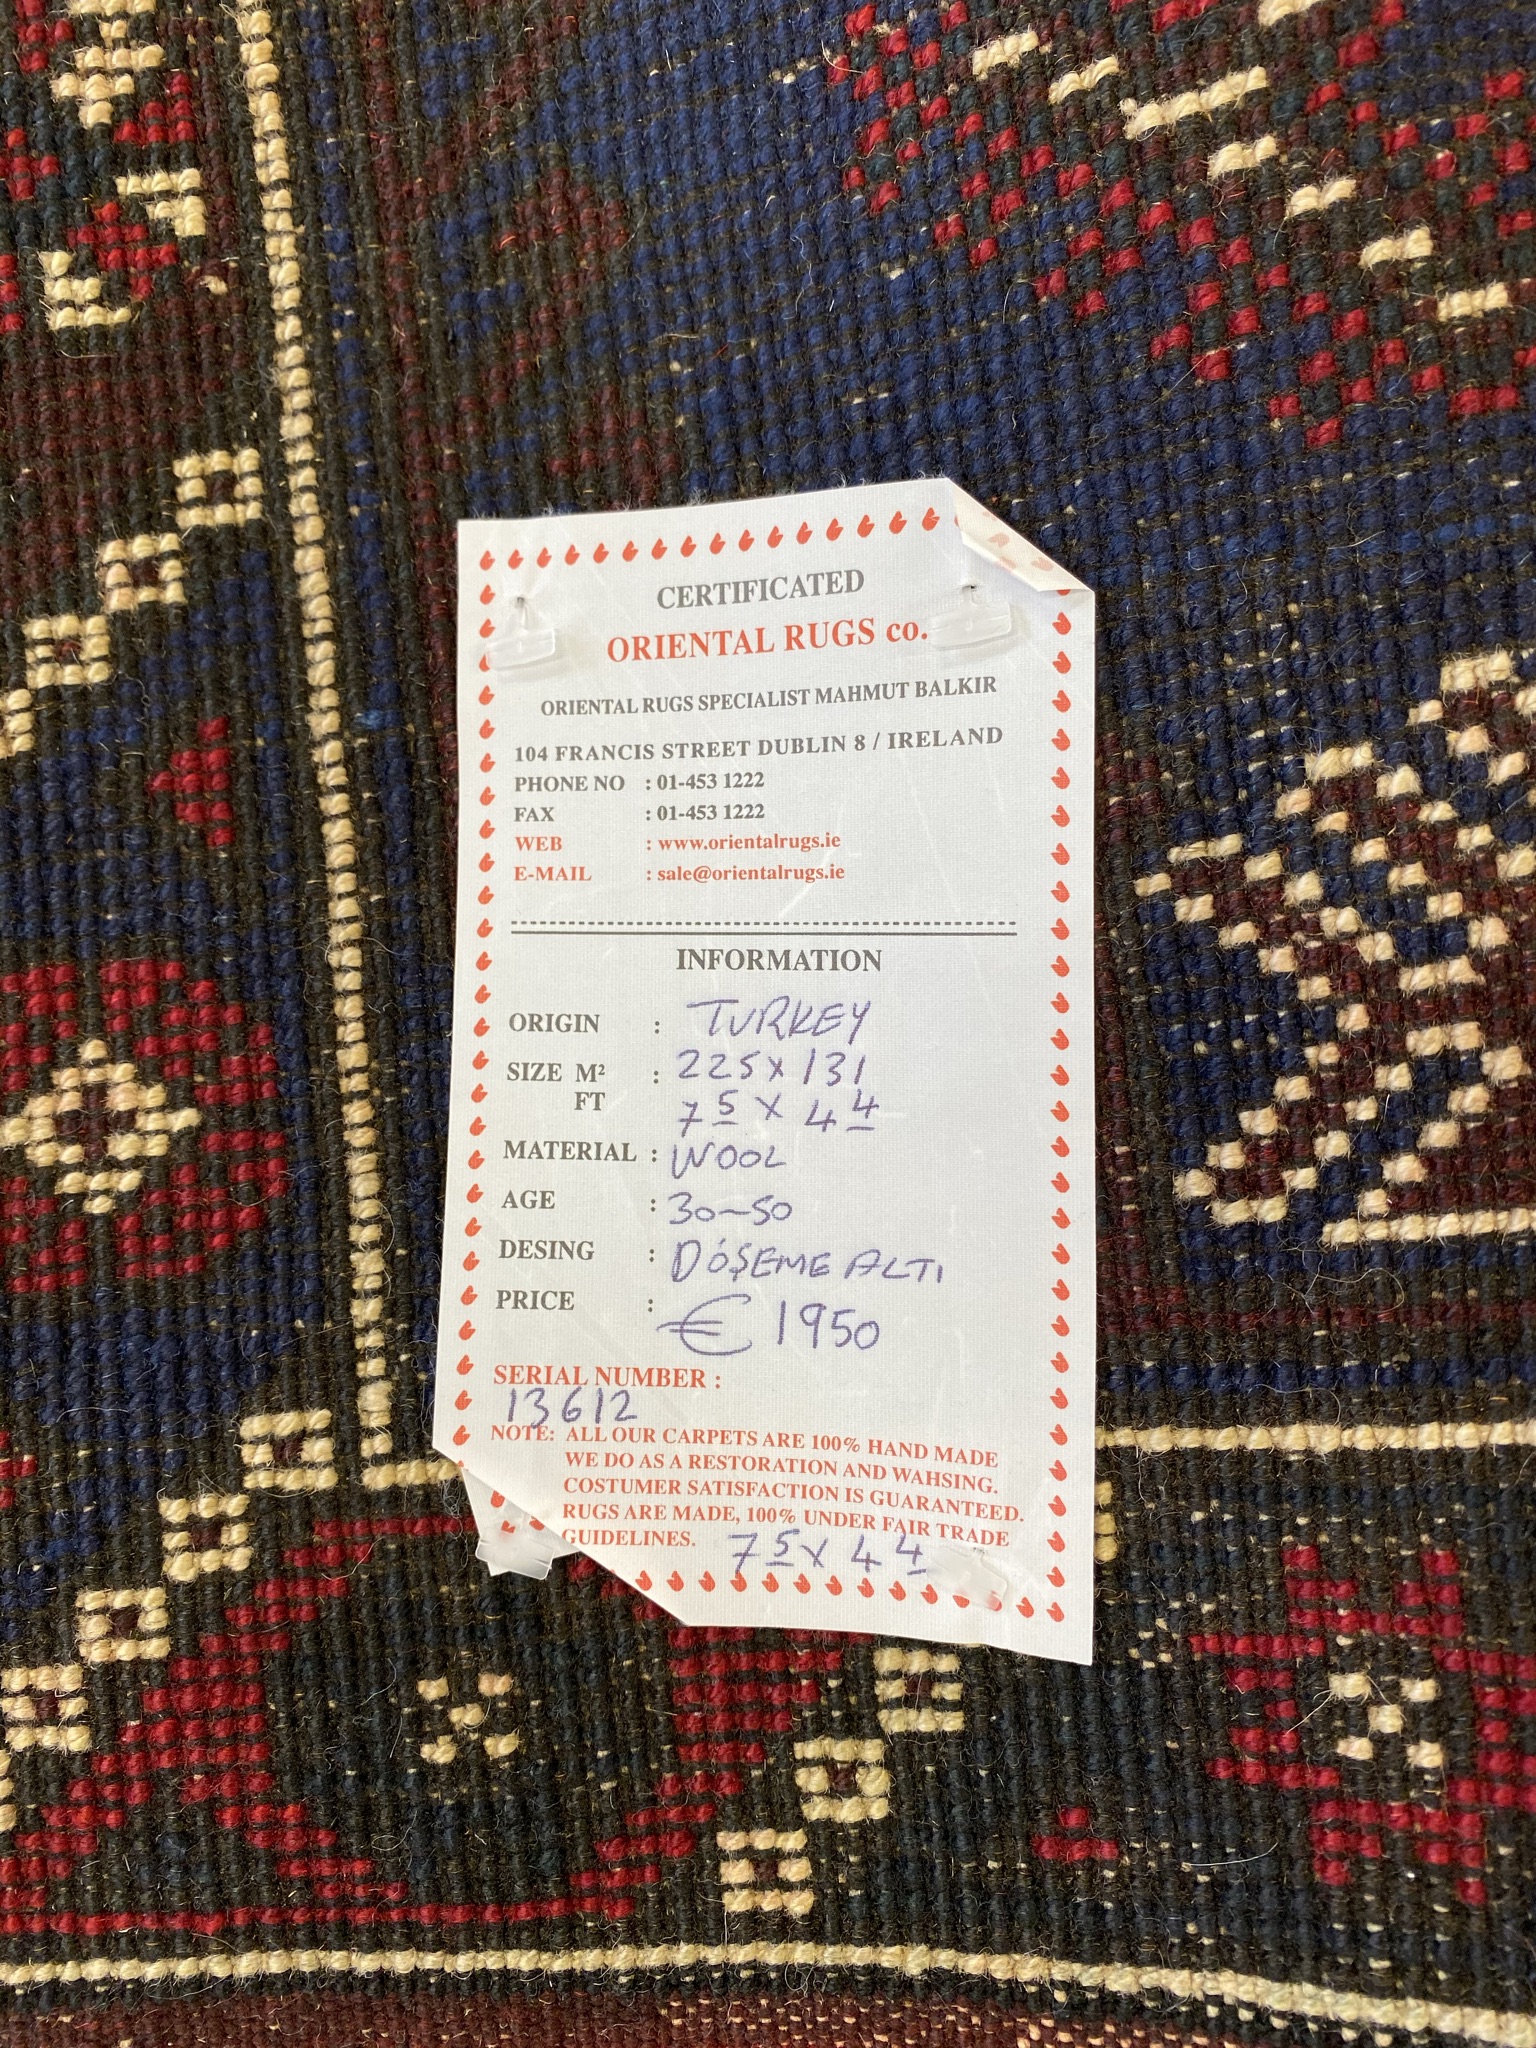 CERTIFICATED
ORIENTAL RUGS co.
ORIENTAL RUGS SPECIALIST MAHMUT BALKIR
104 FRANCIS STREET DUBLIN 8 / IRELAND
PHONE NO : 01-453 1222
FAX : 01-453 1222
WEB : www.orientalrugs.ie
E-MAIL : sale@orientalrugs.ie
INFORMATION
ORIGIN : TURKEY
SIZE M² : 225 x 131
FT 7 5 x 4 4
MATERIAL : WOOL
AGE : 30-50
DESING : DÓŞEME ALTI
PRICE : € 1950
SERIAL NUMBER :
13612
NOTE: ALL OUR CARPETS ARE 100% HAND MADE
WE DO AS A RESTORATION AND WAHSING.
COSTUMER SATISFACTION IS GUARANTEED.
RUGS ARE MADE, 100% UNDER FAIR TRADE
GUIDELINES. 7 5 x 4 4